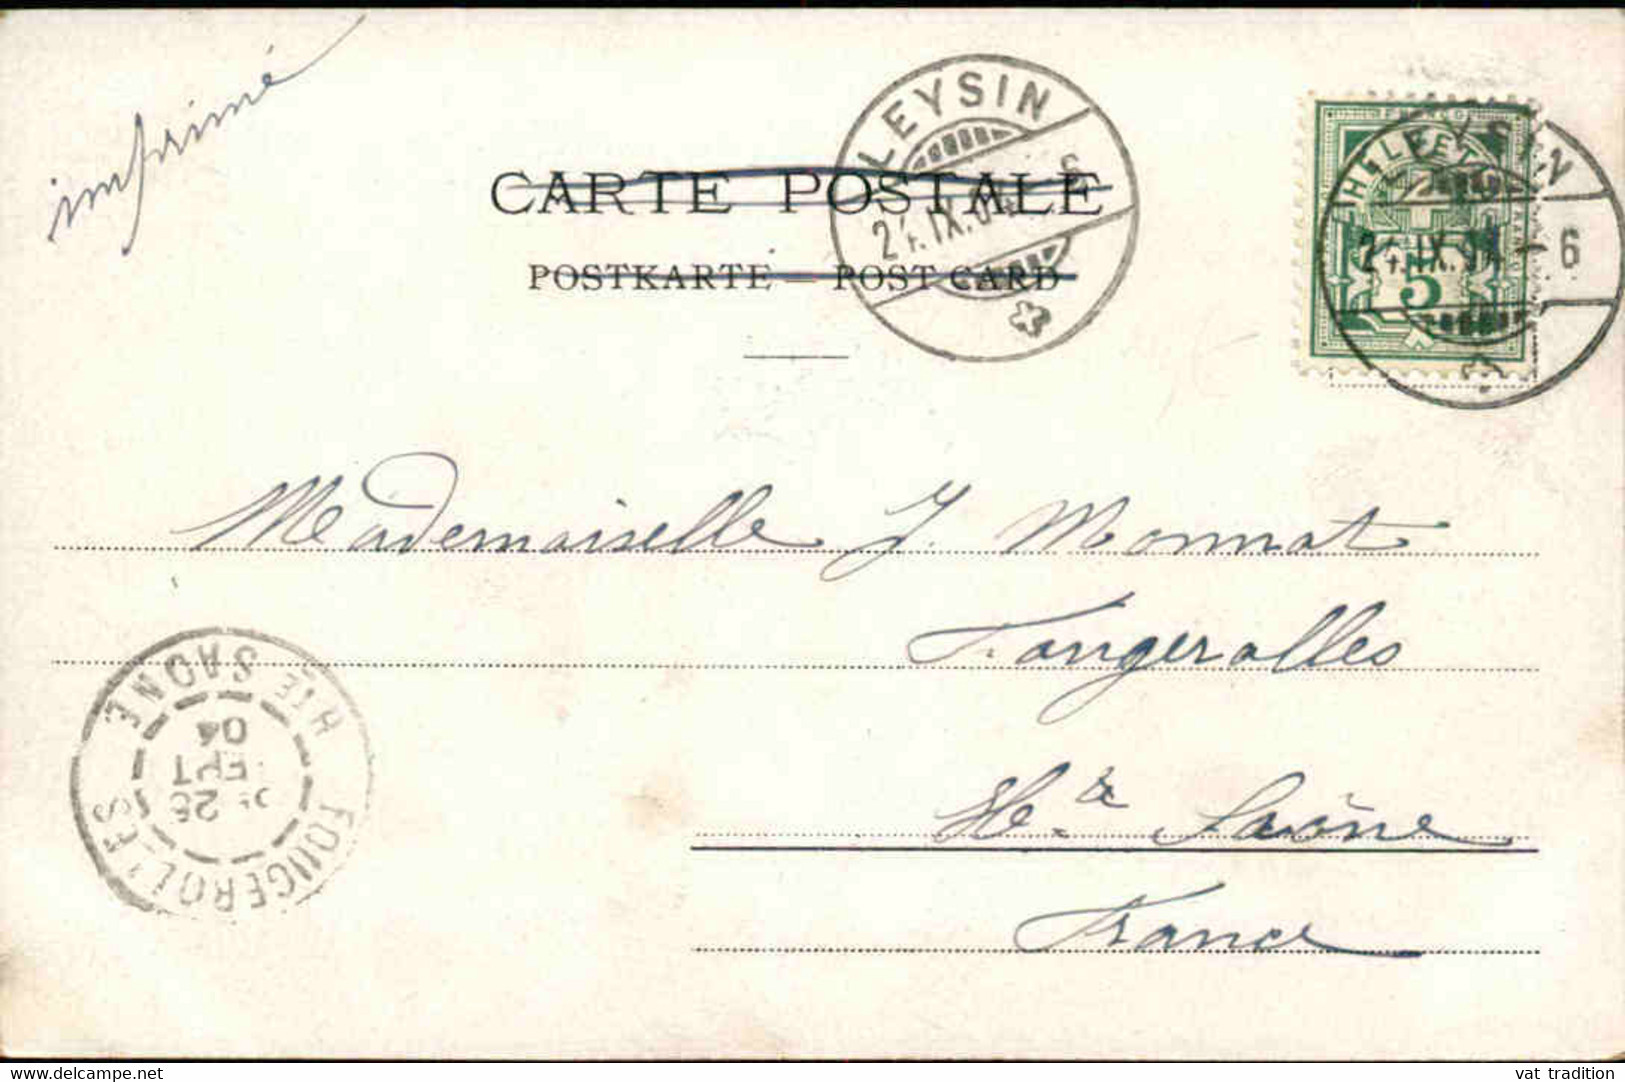 imprimé
LEYSIN
24.IX.04
CARTE POSTALE
POSTKARTE — POST CARD
FRANCO
HELVETIA
5
LEYSIN
24.IX.04 6
Mademoiselle J. Monnat
Fougerolles
Hte Saône
France
FOUGEROLLES
HTE SAONE
25
SEPT
04
vat tradition